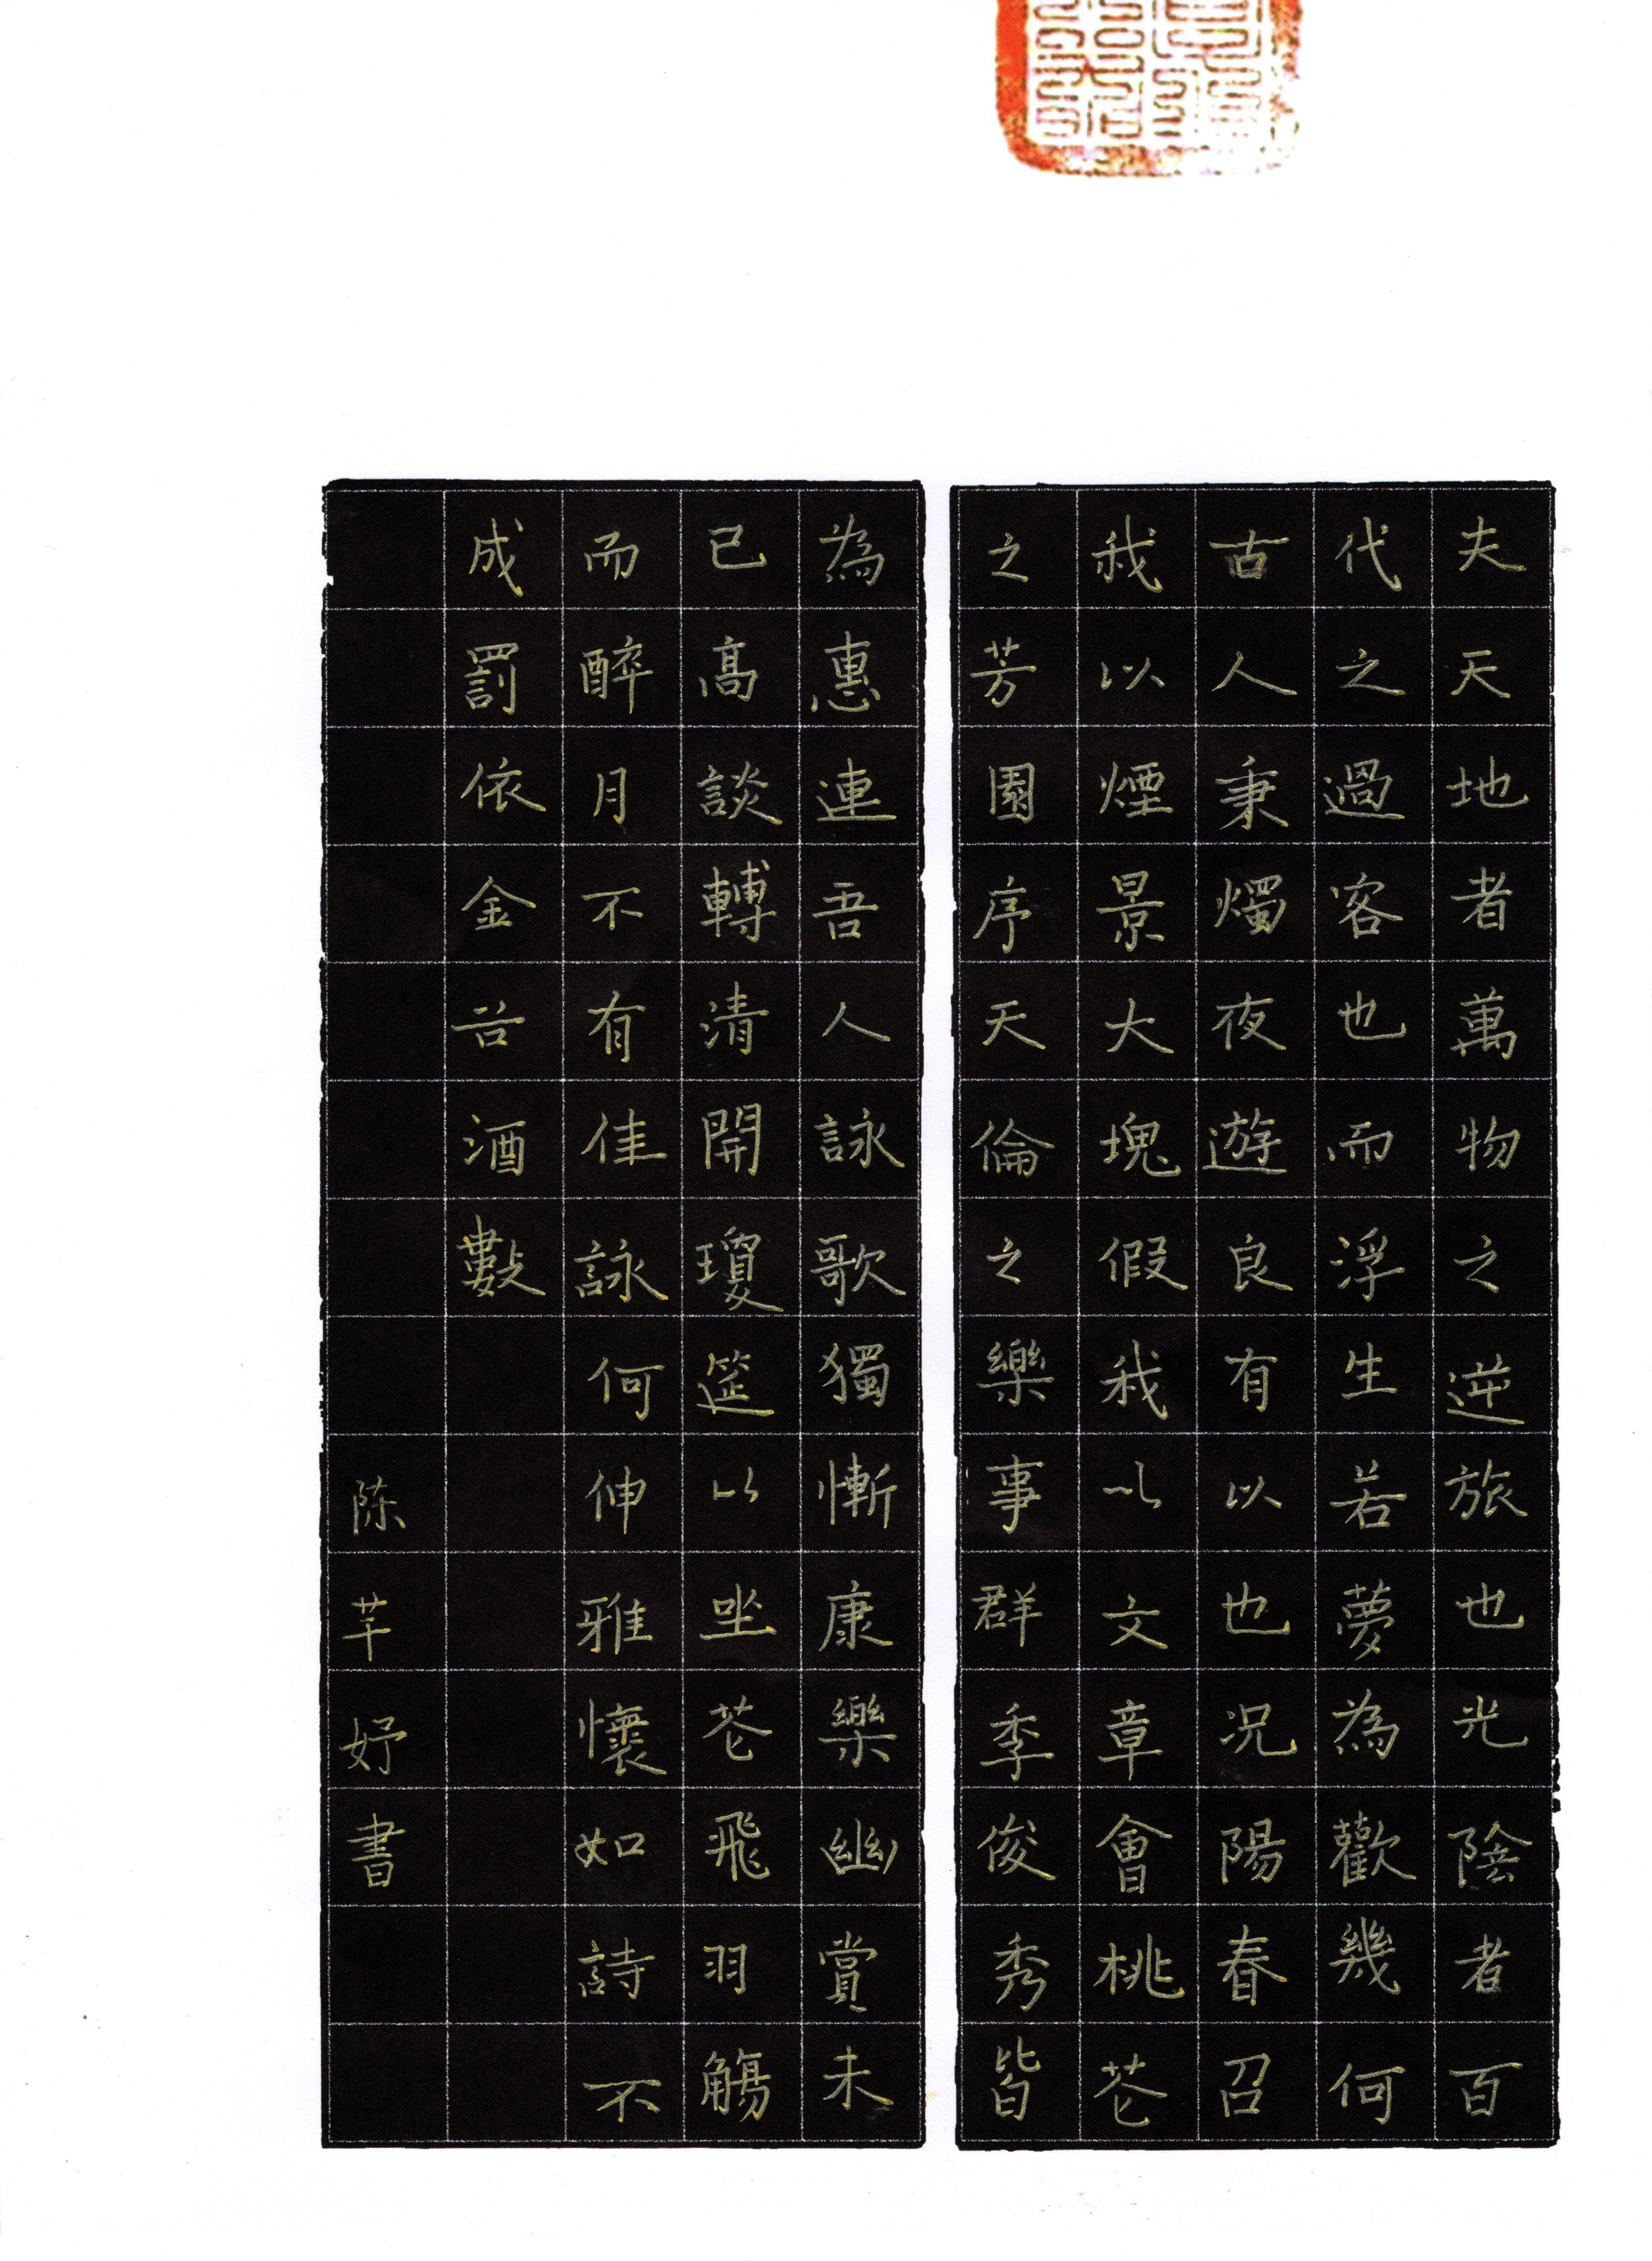 夫天地者萬物之逆旅也光陰者百
代之過客也而浮生若夢為歡幾何
古人秉燭夜遊良有以也况陽春召
我以煙景大塊假我以文章會桃花
之芳園序天倫之樂事群季俊秀皆
為惠連吾人詠歌獨慚康樂幽賞未
已高談轉清開瓊筵以坐花飛羽觴
而醉月不有佳詠何伸雅懷如詩不
成罰依金谷酒數
陈芊妤書